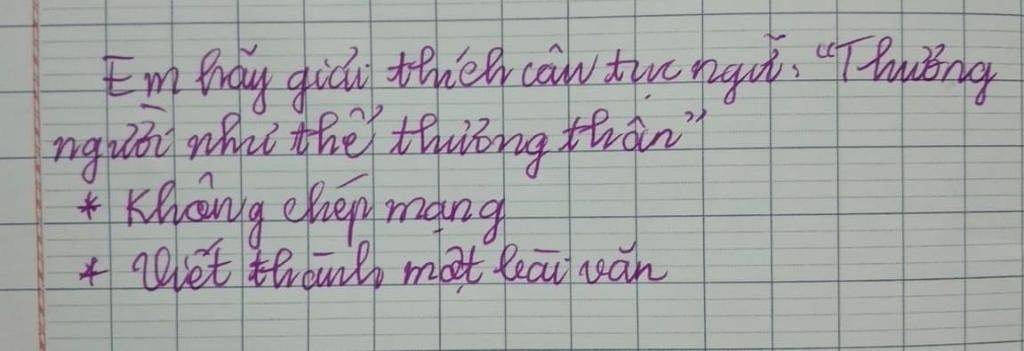 Em hãy giải thích câu tục ngữ: "Thương
người như thể thương thân"
* Không chép mạng
* Viết thành một bài văn